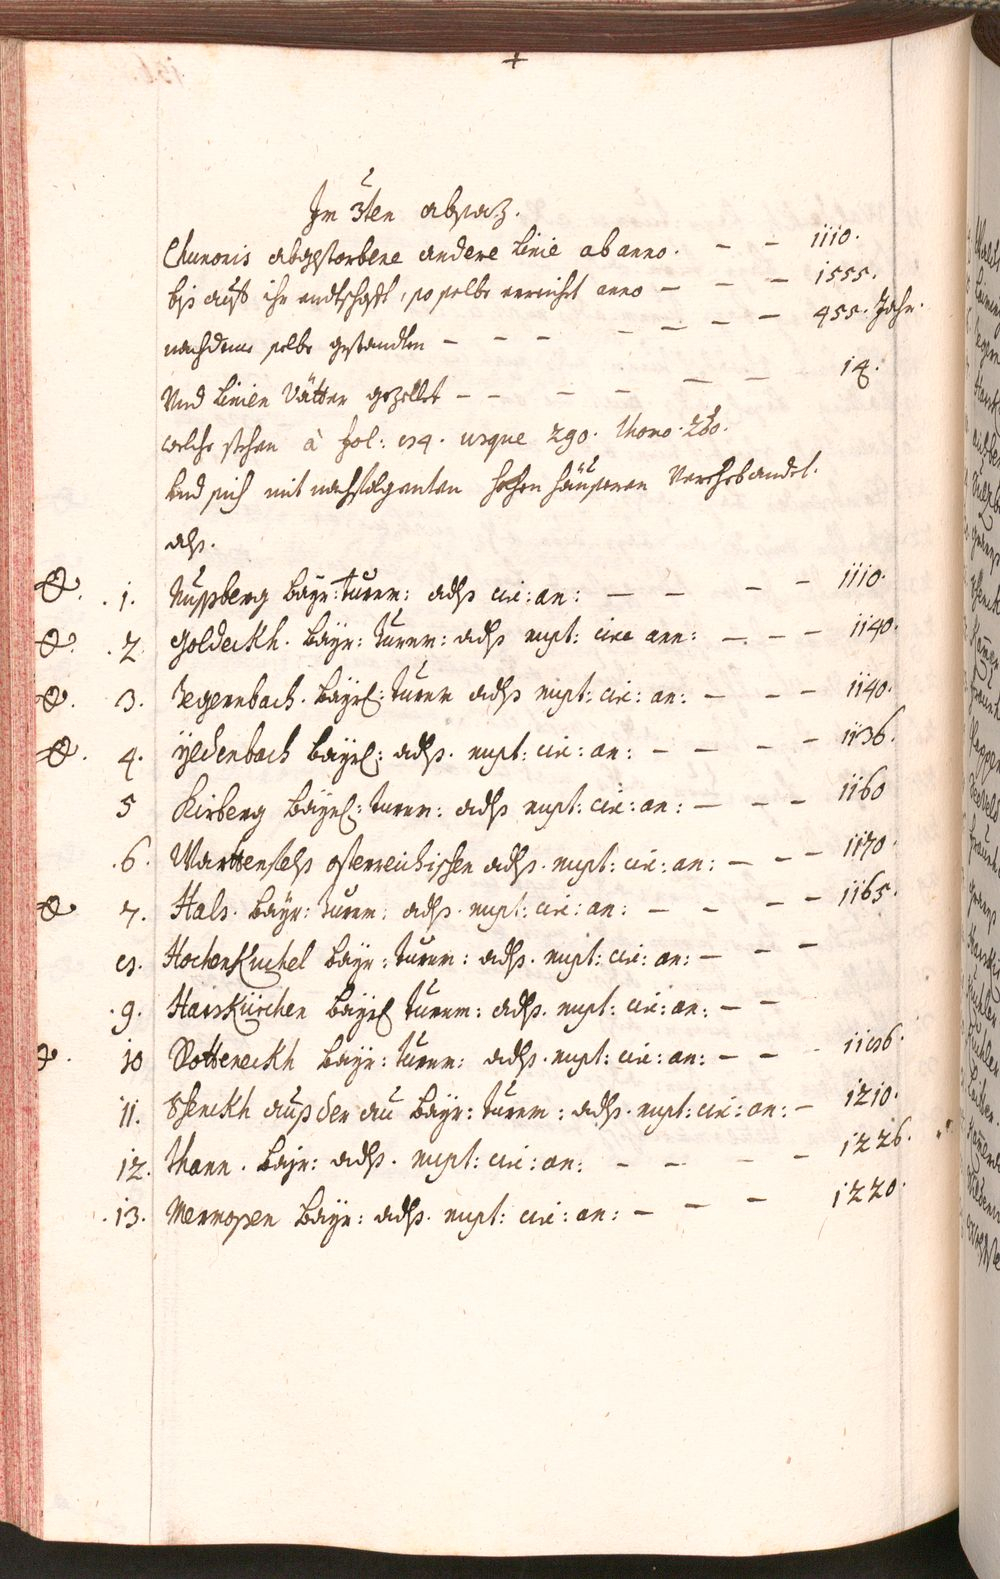 +
Im 3ten absaz.
Chunonis abgestorbene andere Linie ab anno. — — 1110.
bis auf ihr endtschafft, so selbe erreicht anno — — — 1555.
nachdeme selbe gestandten — — — — — — — 455. Jahr.
Und Linien Vätter gezellet — — — — — — 14.
welche stehen à fol: 184. usque 290. thomo. 2do.
Und sich mit nachfolgenten hochen häusseren Verehebandet.
als.
1. Nussberg Bayr: turnr: adls cir: an: — — — — 1110.
2. Goldeckh. Bayr: turnr: adls nupt: circa ann: — — — 1140.
3. Degernbach. Bayrl: turnr adls nupt: cir: an: — — — 1140.
4. Yldenbach Bayrl: adls. nupt: cir: an: — — — — 1136.
5 Kirberg Bayrl: turnr: adls nupt: cir: an: — — — 1160
6. Warttenfels österreichischen adls. nupt: cir: an: — — — 1170.
7. Hals. Bayr: turnr: adls. nupt: cir: an: — — — — 1165.
8. Hochenkuchel Bayr: turnr: adls. nupt: cir: an: — — —
9. Haiskürchen Bayrl turnr: adls. nupt: cir: an: — —
10 Rotteneckh Bayr: turnr: adls. nupt: cir: an: — — — 1186.
11. Schenckh auß der au Bayr: turnr: adls. nupt: cir: an: — 1210.
12. Thann. Bayr: adls. nupt: cir: an: — — — — 1226.
13. Mermosen Bayr: adls. nupt: cir: an: — — — 1220.